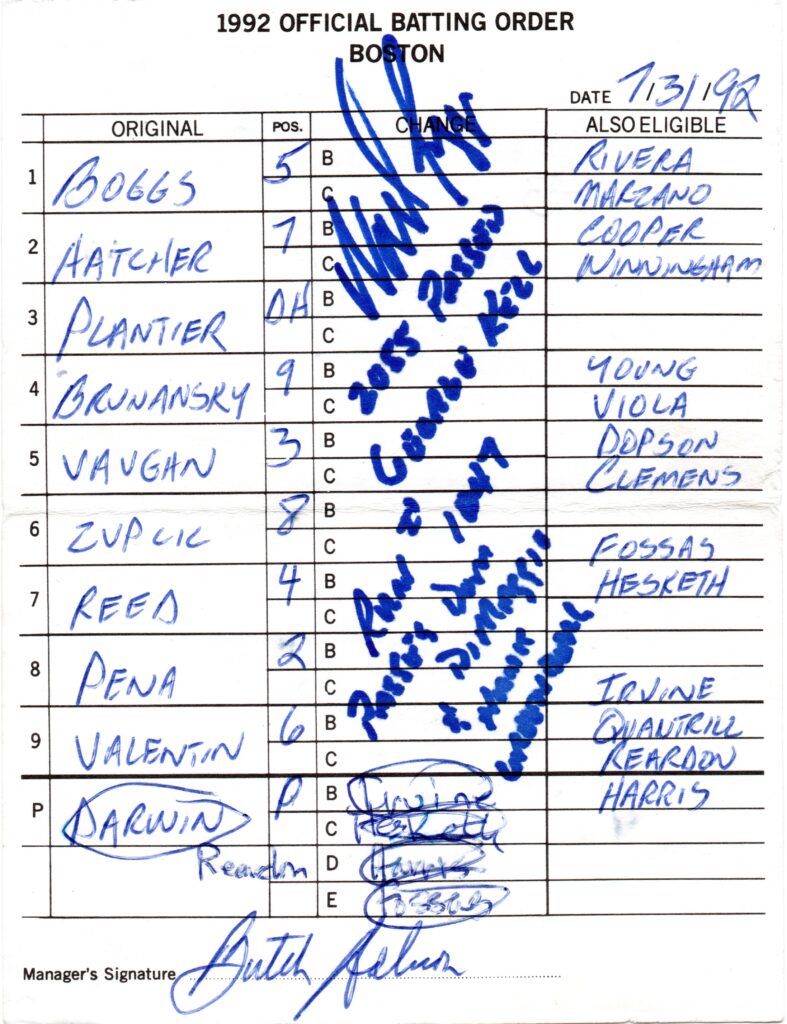 1992 OFFICIAL BATTING ORDER
BOSTON
DATE 7/31/92
ORIGINAL POS. CHANGE ALSO ELIGIBLE
1 BOGGS 5 B RIVERA
C MARZANO
2 HATCHER 7 B COOPER
C WINNINGHAM
3 PLANTIER DH B
C
4 BRUNANSKY 9 B YOUNG
C VIOLA
5 VAUGHN 3 B DOPSON
C CLEMENS
6 ZUPCIC 8 B
C FOSSAS
7 REED 4 B HESKETH
C
8 PENA 2 B
C IRVINE
9 VALENTIN 6 B QUANTRILL
C REARDON
P DARWIN P B Irvine HARRIS
C Hesketh
Reardon D Harris
E Fossas
2055 PASSED
GEORGE KELL
1947
DOM
DIMAGGIO
Manager's Signature Butch Hobson